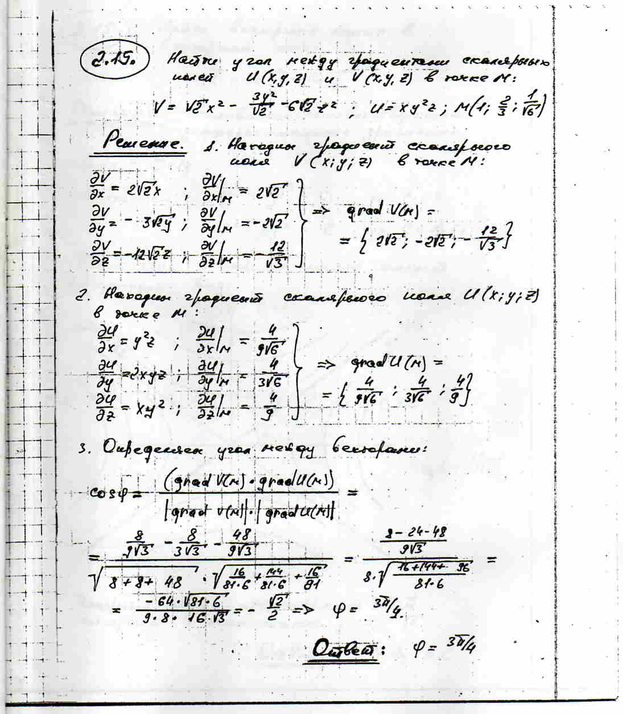 2.15. Найти угол между градиентами скалярных
полей U(x,y,z) и V(x,y,z) в точке M:
V = √2 x² − 3y²/√2 − 6√2 z² ; U = xy²z ; M(1; 2/3; 1/√6)
Решение. 1. Находим градиент скалярного
поля V(x;y;z) в точке M:
∂V/∂x = 2√2x ; ∂V/∂x|м = 2√2
∂V/∂y = −3√2y ; ∂V/∂y|м = −2√2 } => grad V(м) =
∂V/∂z = −12√2z ; ∂V/∂z|м = −12/√3 = {2√2; −2√2; −12/√3}
2. Находим градиент скалярного поля U(x;y;z)
в точке M:
∂U/∂x = y²z ; ∂U/∂x|м = 4/9√6
∂U/∂y = 2xyz ; ∂U/∂y|м = 4/3√6 } => grad U(м) =
∂U/∂z = xy² ; ∂U/∂z|м = 4/9 = {4/9√6 ; 4/3√6 ; 4/9}
3. Определяем угол между векторами:
cosφ = (grad V(м) · grad U(м)) / |grad V(м)| · |grad U(м)| =
= (8/9√3 − 8/3√3 − 48/9√3) / (√(8+8+48) · √(16/81·6 + 144/81·6 + 16/81)) = ((8−24−48)/9√3) / (8·√((16+144+96)/81·6)) =
= −64·√81·6 / 9·8·16·√3 = −√2/2 => φ = 3π/4.
Ответ: φ = 3π/4